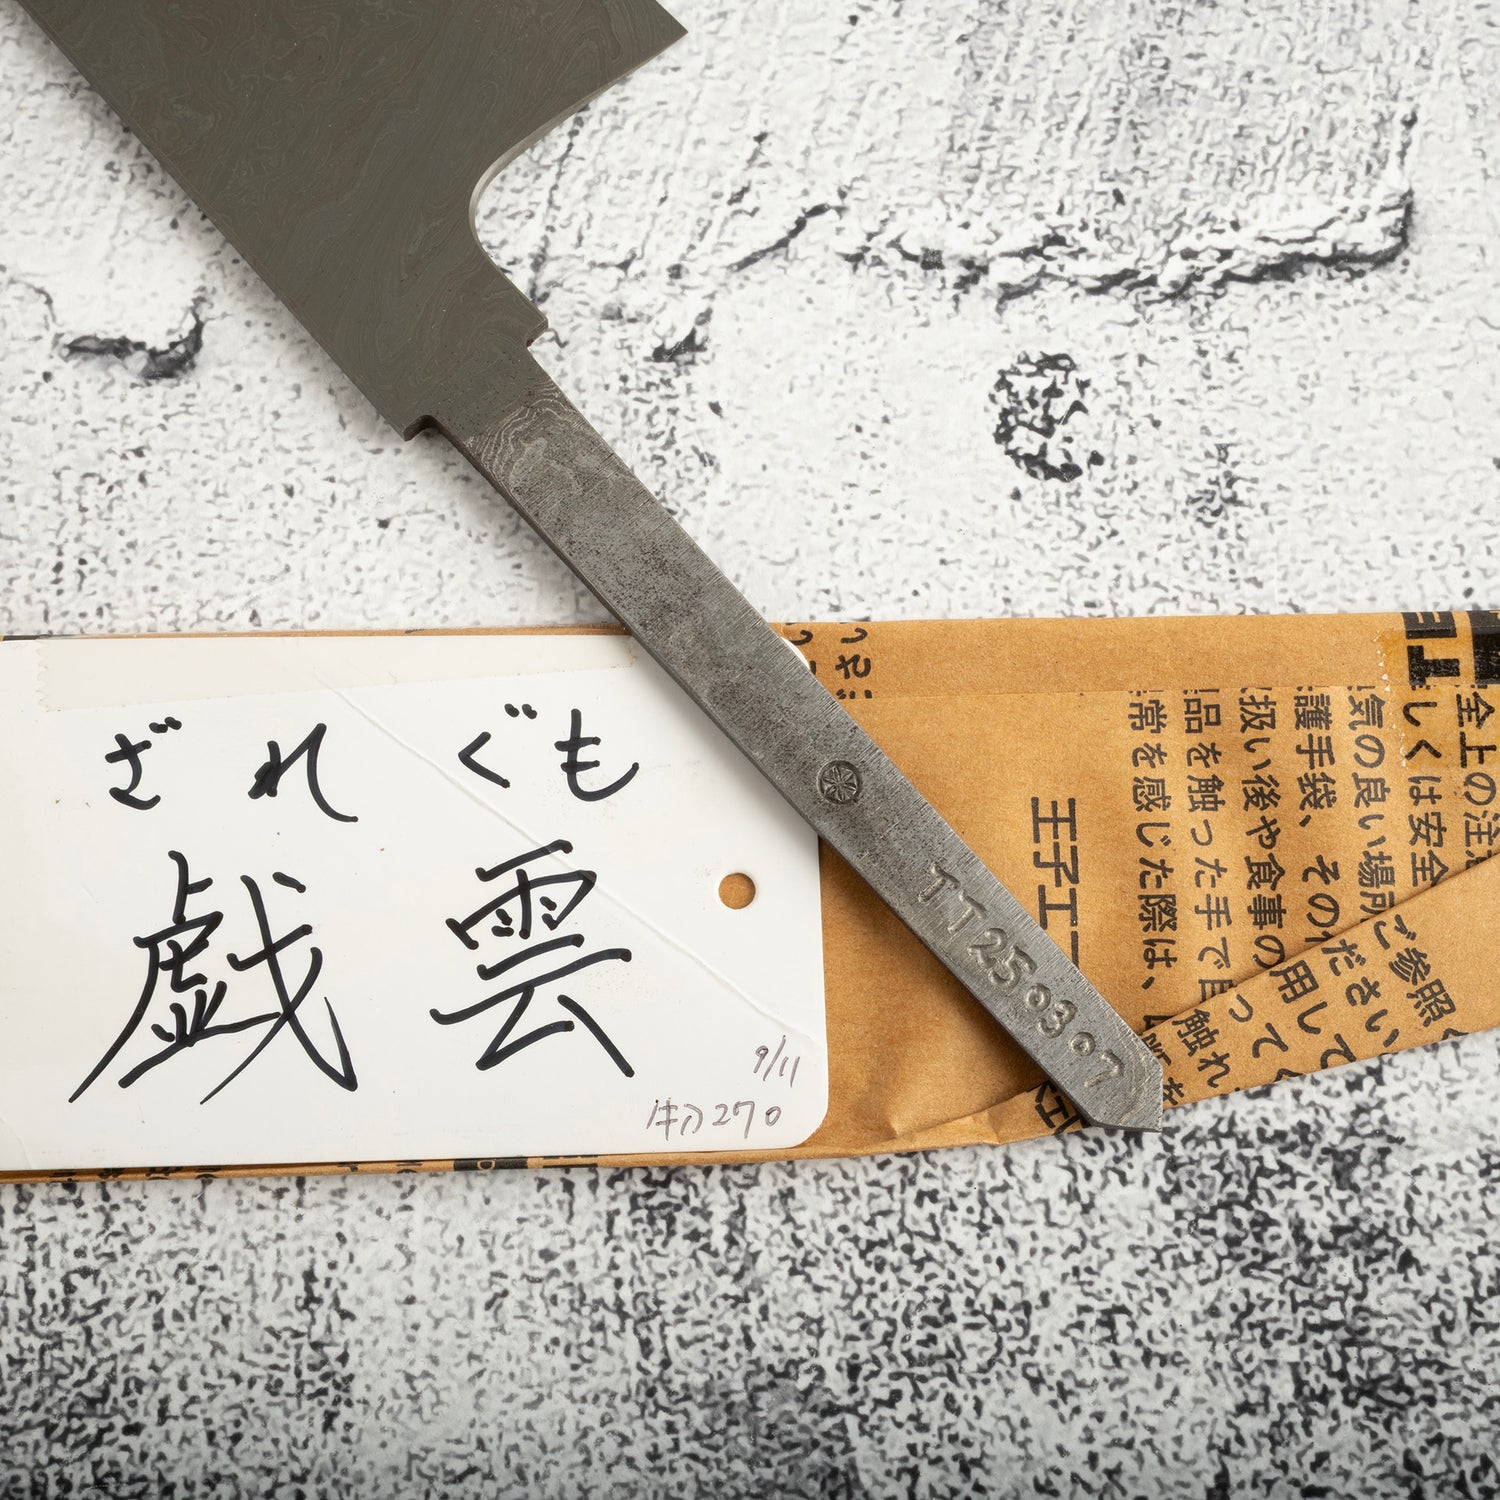 ざれぐも
戯雲
9/11
牛刀270
TT25.03.07
王子エ
全上の注
しくは安全
気の良い場所
護手袋、その
扱い後や食事の
品を触った手で目
常を感じた際は、
ご参照く
ださい
用して
って
触れ